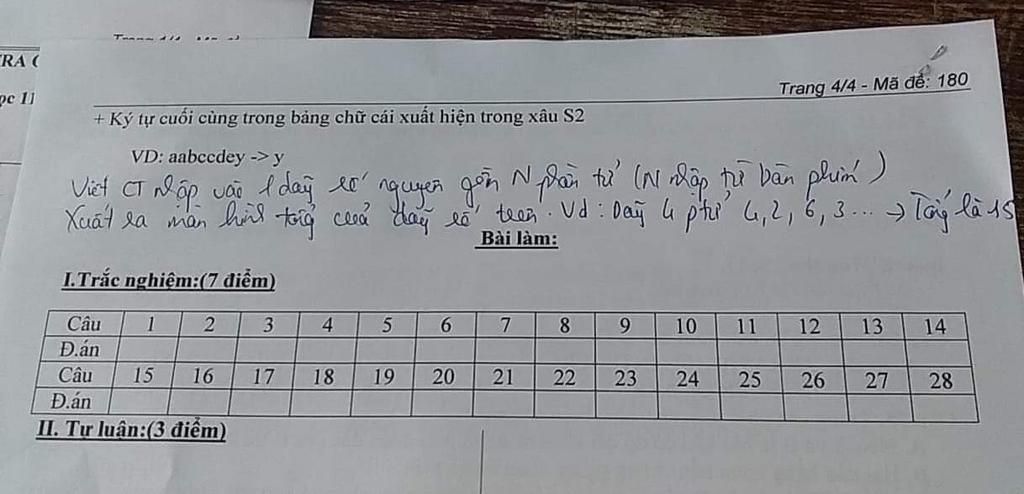 RA
ọc 11
Trang 4/4 - Mã đề: 180
+ Ký tự cuối cùng trong bảng chữ cái xuất hiện trong xâu S2
VD: aabccdey -> y
Viết CT nhập vào 1 dãy số nguyên gồm N phần tử (N nhập từ bàn phím)
Xuất ra màn hình tổng của dãy số trên. Vd: Dãy 4 ptử 4, 2, 6, 3 ... → Tổng là 15
Bài làm:
I.Trắc nghiệm:(7 điểm)
Câu 1 2 3 4 5 6 7 8 9 10 11 12 13 14
Đ.án
Câu 15 16 17 18 19 20 21 22 23 24 25 26 27 28
Đ.án
II. Tự luận:(3 điểm)